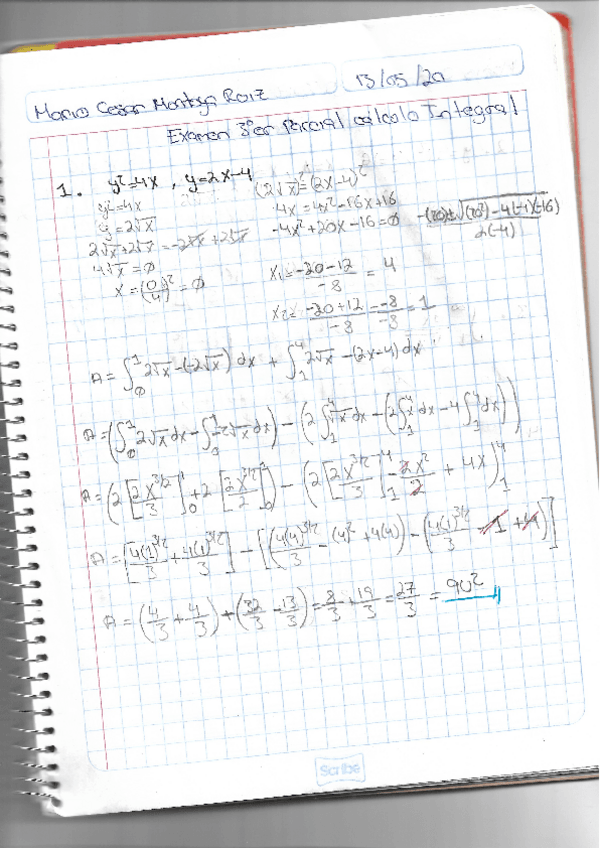 Mario Cesar Montoya Ruiz 13/05/20
Examen 3er Parcial calculo Integral
1. y²=4x , y=2x-4 (2√x)²=(2x-4)²
y²=4x 4x=4x²-16x+16
y=2√x -4x²+20x-16=0
2√x+2√x=-2√x+2√x
4√x=0 x₁=-20-12/-8 = 4
x=(0/4)²=0
x₂=-20+12/-8=-8/-8=1
A=∫₀¹2√x-(-2√x)dx + ∫₁⁴2√x-(2x-4)dx
A=(∫₀¹2√x dx-∫₀¹-2√x dx)-(2∫₁⁴√x dx-(2∫₁⁴x dx-4∫₁⁴dx))
A=(2[2x^3/2/3]₀¹+2[2x^3/2/2]₀¹)-(2[2x^3/2/3]₁⁴-2x²/2+4x)₁⁴
A=[4(1)^3/2/3+4(1)^3/2/3]-[(4(4)^3/2/3-(4)²+4(4))-(4(1)^3/2/3-1+4)]
A=(4/3+4/3)+(32/3-13/3)=8/3+19/3=27/3=9u²
Scribe